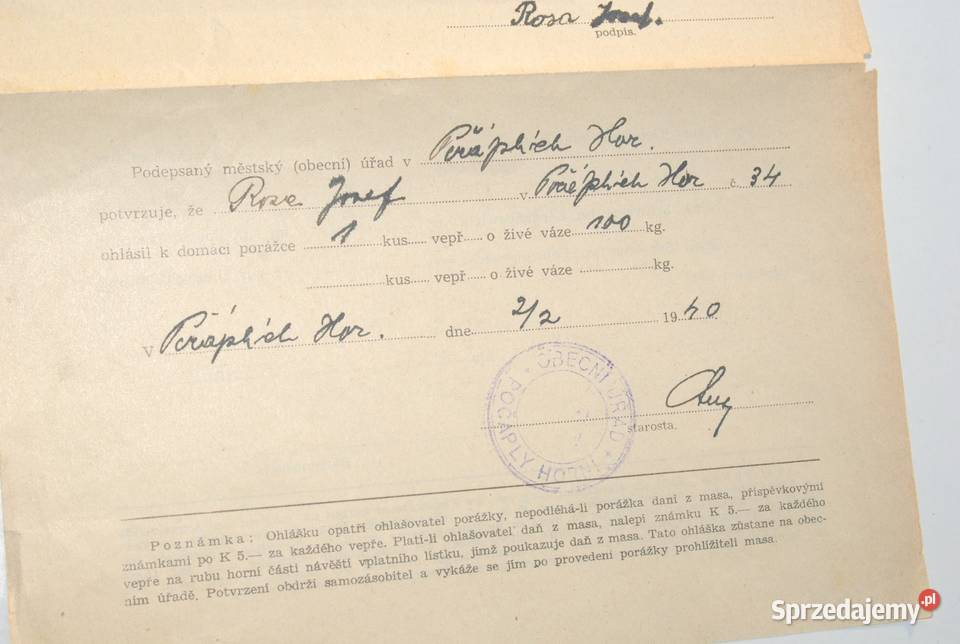 Rosa Josef.
podpis.
Podepsaný městský (obecní) úřad v Počáplích Hor.
potvrzuje, že Rosa Josef v Počáplích Hor č. 34
ohlásil k domácí porážce 1 kus...... vepř...... o živé váze 100 kg.
kus...... vepř...... o živé váze kg.
V Počáplích Hor. dne 2/2 1940
OBECNÍ ÚŘAD
POČÁPLY HORNÍ
starosta.
Poznámka: Ohlášku opatří ohlašovatel porážky, nepodléhá-li porážka dani z masa, příspěvkovými
známkami po K 5.— za každého vepře. Platí-li ohlašovatel daň z masa, nalepí známku K 5.— za každého
vepře na rubu horní části návěští vplatního lístku, jímž poukazuje daň z masa. Tato ohláška zůstane na obec-
ním úřadě. Potvrzení obdrží samozásobitel a vykáže se jím po provedení porážky prohlížiteli masa.
Sprzedajemy.pl